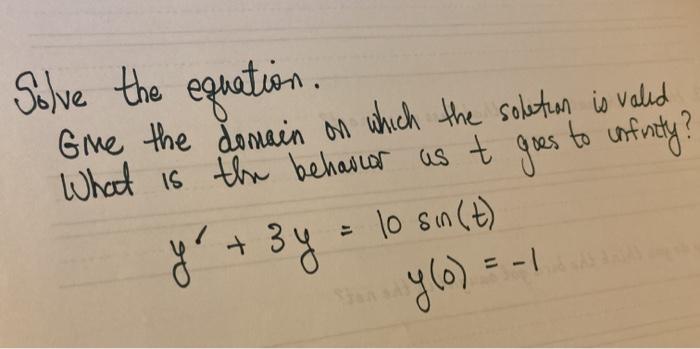 Solve the equation.
Give the domain on which the solution is valid
What is the behavior as t goes to infinity?
y' + 3y = 10 sin(t)
y(0) = -1